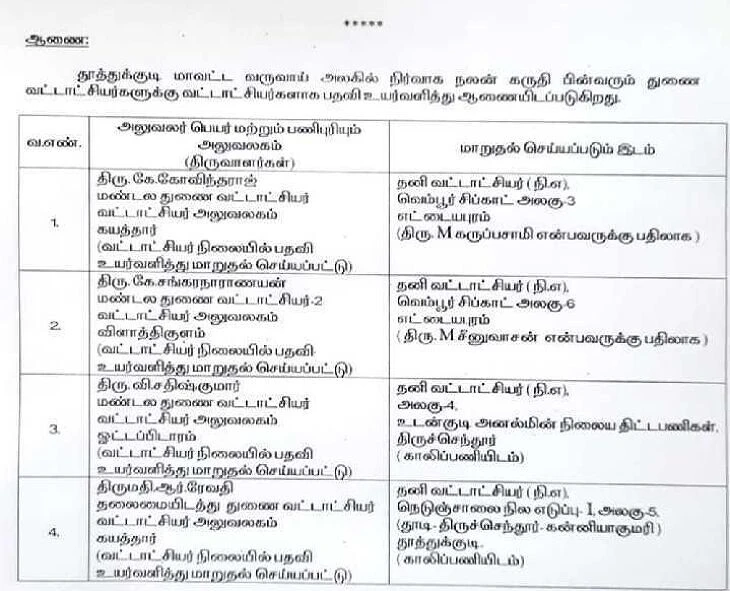 *****
ஆணை:
தூத்துக்குடி மாவட்ட வருவாய் அலகில் நிர்வாக நலன் கருதி பின்வரும் துணை
வட்டாட்சியர்களுக்கு வட்டாட்சியர்களாக பதவி உயர்வளித்து ஆணையிடப்படுகிறது.
வ.எண்.
அலுவலர் பெயர் மற்றும் பணிபுரியும்
அலுவலகம்
(திருவாளர்கள்)
மாறுதல் செய்யப்படும் இடம்
1.
திரு. கே.கோவிந்தராஜ்
மண்டல துணை வட்டாட்சியர்
வட்டாட்சியர் அலுவலகம்
கயத்தார்
(வட்டாட்சியர் நிலையில் பதவி
உயர்வளித்து மாறுதல் செய்யப்பட்டு)
தனி வட்டாட்சியர் (நி.எ),
வெம்பூர் சிப்காட் அலகு-3
எட்டையபுரம்
(திரு. M கருப்பசாமி என்பவருக்கு பதிலாக )
2.
திரு.கே.சங்கரநாராணயன்
மண்டல துணை வட்டாட்சியர்-2
வட்டாட்சியர் அலுவலகம்
விளாத்திகுளம்
(வட்டாட்சியர் நிலையில் பதவி
உயர்வளித்து மாறுதல் செய்யப்பட்டு)
தனி வட்டாட்சியர் (நி.எ),
வெம்பூர் சிப்காட் அலகு-6
எட்டையபுரம்
( திரு. M சீனுவாசன் என்பவருக்கு பதிலாக )
3.
திரு. வி.சதிஷ்குமார்
மண்டல துணை வட்டாட்சியர்
வட்டாட்சியர் அலுவலகம்
ஓட்டப்பிடாரம்
(வட்டாட்சியர் நிலையில் பதவி
உயர்வளித்து மாறுதல் செய்யப்பட்டு)
தனி வட்டாட்சியர் ( நி.எ),
அலகு-4,
உடன்குடி அனல்மின் நிலைய திட்டபணிகள்,
திருச்செந்தூர்
( காலிப்பணியிடம்)
4.
திருமதி.ஆர்.ரேவதி
தலைமையிடத்து துணை வட்டாட்சியர்
வட்டாட்சியர் அலுவலகம்
கயத்தார்
(வட்டாட்சியர் நிலையில் பதவி
உயர்வளித்து மாறுதல் செய்யப்பட்டு)
தனி வட்டாட்சியர் (நி.எ),
நெடுஞ்சாலை நில எடுப்பு- I, அலகு-5,
(தூடி- திருச்செந்தூர்- கன்னியாகுமரி )
தூத்துக்குடி.
(காலிப்பணியிடம்)